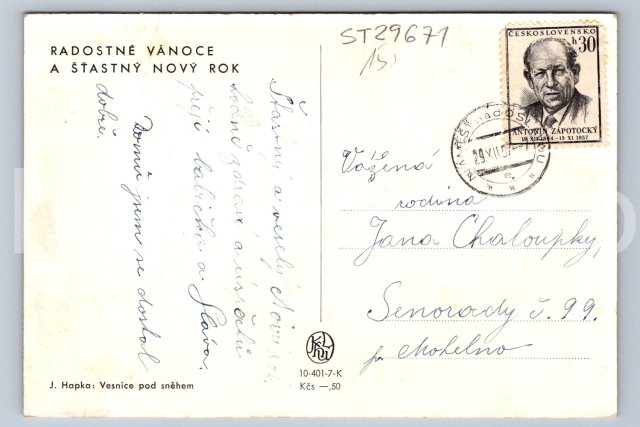 ST29671
RADOSTNÉ VÁNOCE
A ŠŤASTNÝ NOVÝ ROK
ČESKOSLOVENSKO
h 30
ANTONÍN ZÁPOTOCKÝ
19 XII 1884 - 13 XI 1957
NÁMĚŠŤ nad OSLAVOU
29.XII.57
Šťastný a veselý Nový rok
hodně zdraví a úspěchů
přejí babička a Sláva.
Domů jsem se dostal
dobře.
Vážená
rodina
Jana Chaloupky,
Senorady č. 99.
p. Mohelno
10-401-7-K
Kčs —,50
J. Hapka: Vesnice pod sněhem